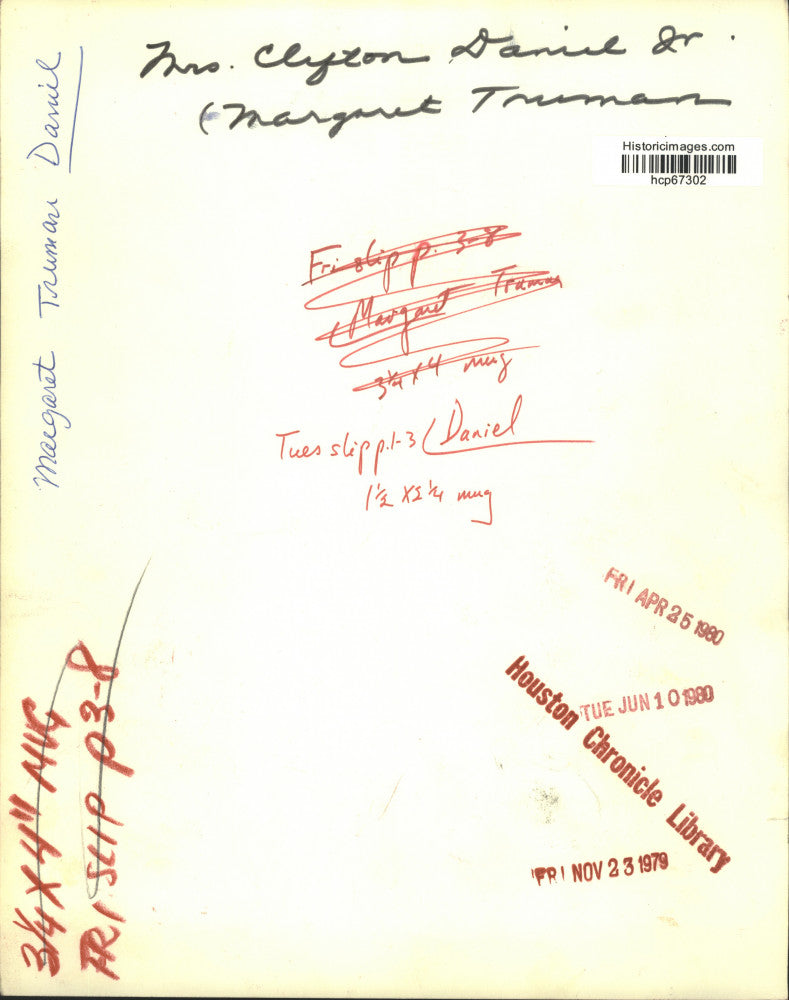 Mrs. Clifton Daniel Jr.
(Margaret Truman
Historicimages.com
hcp67302
Margaret Truman Daniel
Fri slip p. 3-8
Margaret Truman
3¼ x 4 mug
Tues slip p.1-3 (Daniel
1½ x 2¼ mug
FRI APR 25 1980
TUE JUN 10 1980
Houston Chronicle Library
FRI NOV 23 1979
3¼ X 4" MUG
FRI SLIP P 3-8